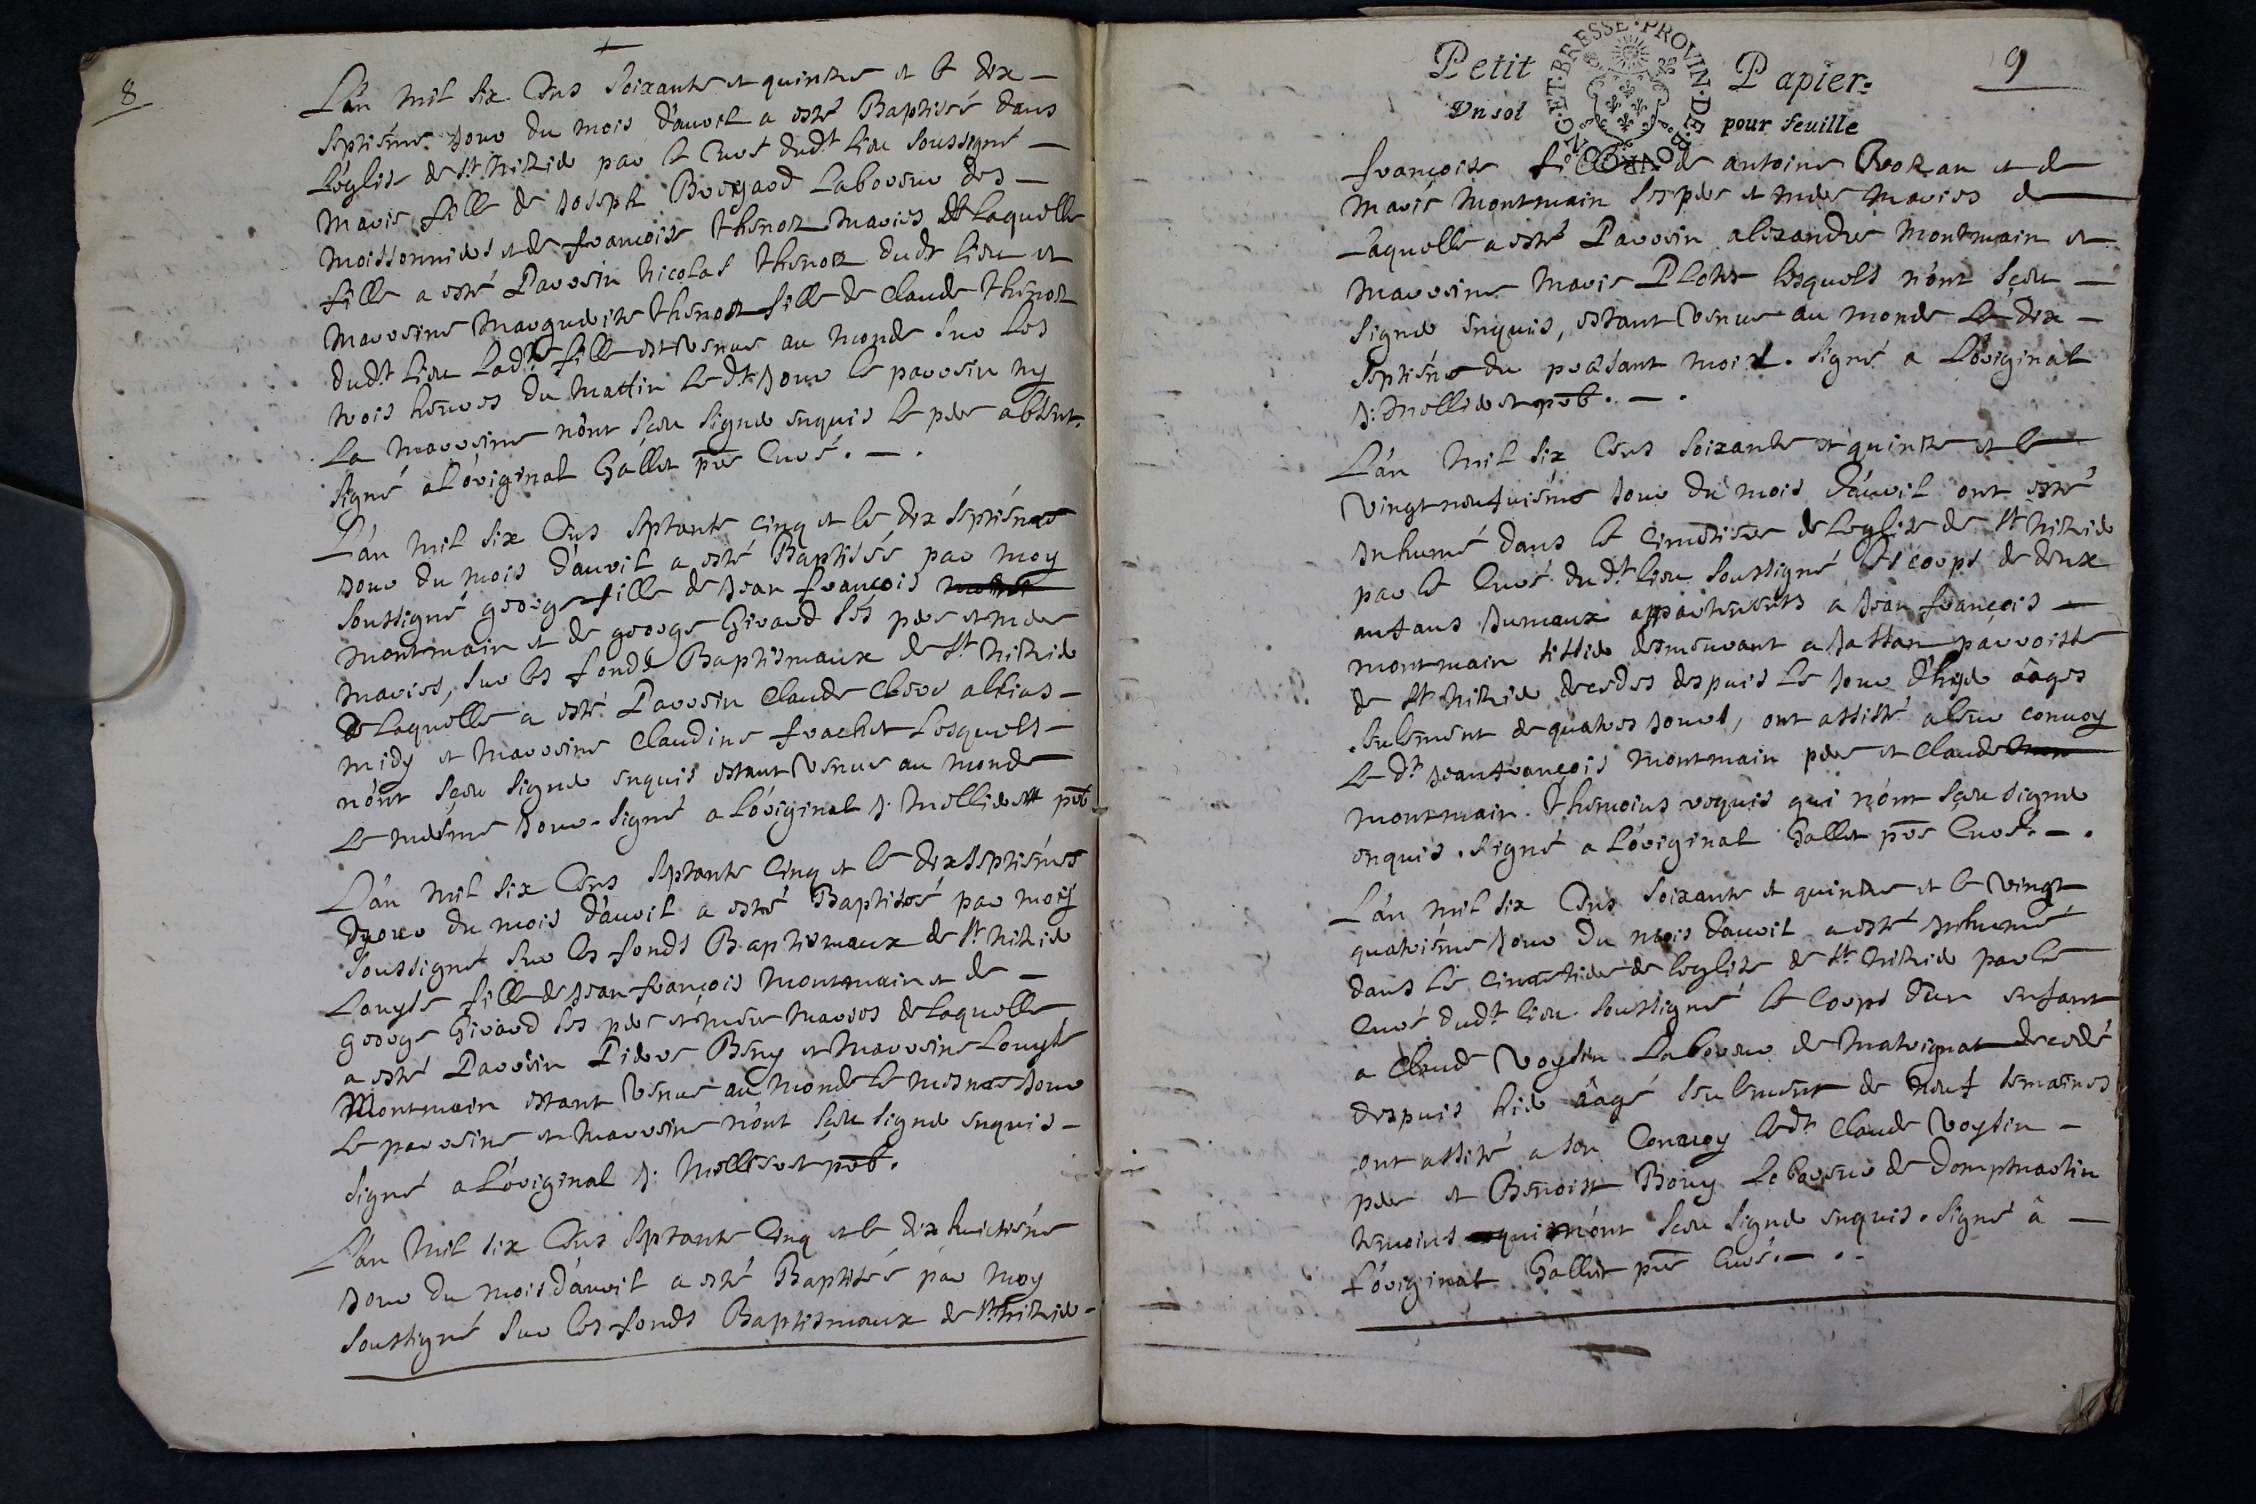 8
L'an mil six Cens soixante et quinze et le dix —
septiéme jour du mois d'auril a esté Baptisée dans
L'église de St Nizier par le Curé dudt lieu soussigné —
Marie fille de Joseph Boyard Laboureur des —
Moissonniers et de françoise Thenoz Mariés de laquelle
fille a esté Parrein Nicolas Thenoz dudt lieu et
Marreine Marguerite Thenoz fille de Claude Thenoz
dudt lieu Ladte fille est venue au monde sur les
trois heures du Mattin Ledt jour le parrein ny
La Marreine n'ont sçeu signer enquis le pere absent.
signé a L'original Gallet pre Curé. — .
L'an mil six Cens septante cinq et le dix septiéme
jour du mois d'auril a esté Baptisée par moy
soussigné george fille de Jean françois
montmain et de george Girard ses pere et mere
mariés, sur les fonds Baptismaux de St Nizier
de Laquelle a esté Parrein Claude Clere allias —
midy et Marreine Claudine frachet Lesquels —
n'ont sçeu signer enquis estant venue au monde
Le mesme jour. signé a L'original J: Mellieret pbr
L'an mil six Cens septante Cinq et le dix septiémes
jour du mois d'auril a esté Baptisée par moy
soussigné sur les fonds Baptismaux de St Nizier
Louyse fille de Jean françois Montmain et de —
george Girard ses pere et mere Mariés de Laquelle
a esté Parrein Pierre Beny et Marreine Louyse
Montmain estant venue au Monde le mesme jour
Le parreine et Marreine n'ont sçeu signer enquis —
signé a L'original J: Mellieret pbr.
L'an Mil six Cens septante Cinq et le dix huictiéme
jour du mois d'auril a esté Baptisée par Moy
soussigné sur les fonds Baptismaux de St Nizier —
Petit Papier:
9
Vn sol pour feuille
BOVRGONG·ET·BRESSE·PROVIN·DE·
françoise fille de antoine Brozan et de
Marie Montmain ses pere et mere Mariés de —
Laquelle a esté Parrein alexandre Montmain et
Marreine Marie Plotet lesquels n'ont sçeu —
signer enquis, estant venue au monde Le dix —
septiéme du present mois. signé a L'original
J: Mellieret pbr. — .
L'an Mil six Cens soixante et quinze et le
vingt neufuiéme jour du mois d'auril ont esté
Inhumé dans le Cimetiere de Leglise de St Nizier
par le Curé dudt lieu soussigné les corps de deux
anfans jumeaux appartenents a Jean françois —
montmain tissier demeurant a parroisse
de St Nizier decedes despuis Le jour d'hyer aâges
seulement de quatres jours, ont assisté a leur conuoy
Le dt Jean françois Montmain pere et Claude
montmain. Themoins requis qui n'ont sçeu signer
enquis. signé a L'original Gallet pre Curé. — .
L'an mil six Cens soixante et quinze et le vingt
quatriéme jour du mois d'auril a esté Inhumé
dans Le Cimettiere de leglise de St Nizier par le
Curé dudt lieu soussigné le Corps d'un enfant
a Claude Voysin Laboureur de Matrignat decedé
despuis hier âagé seulement de neuf semaines
ont assité a son Conuoy ledt Claude Voysin —
pere et Benoist Bony Laboureur de Dompmartin
temoins qui n'ont sçeu signer enquis. signé â —
L'original Gallet pre Curé. — . .